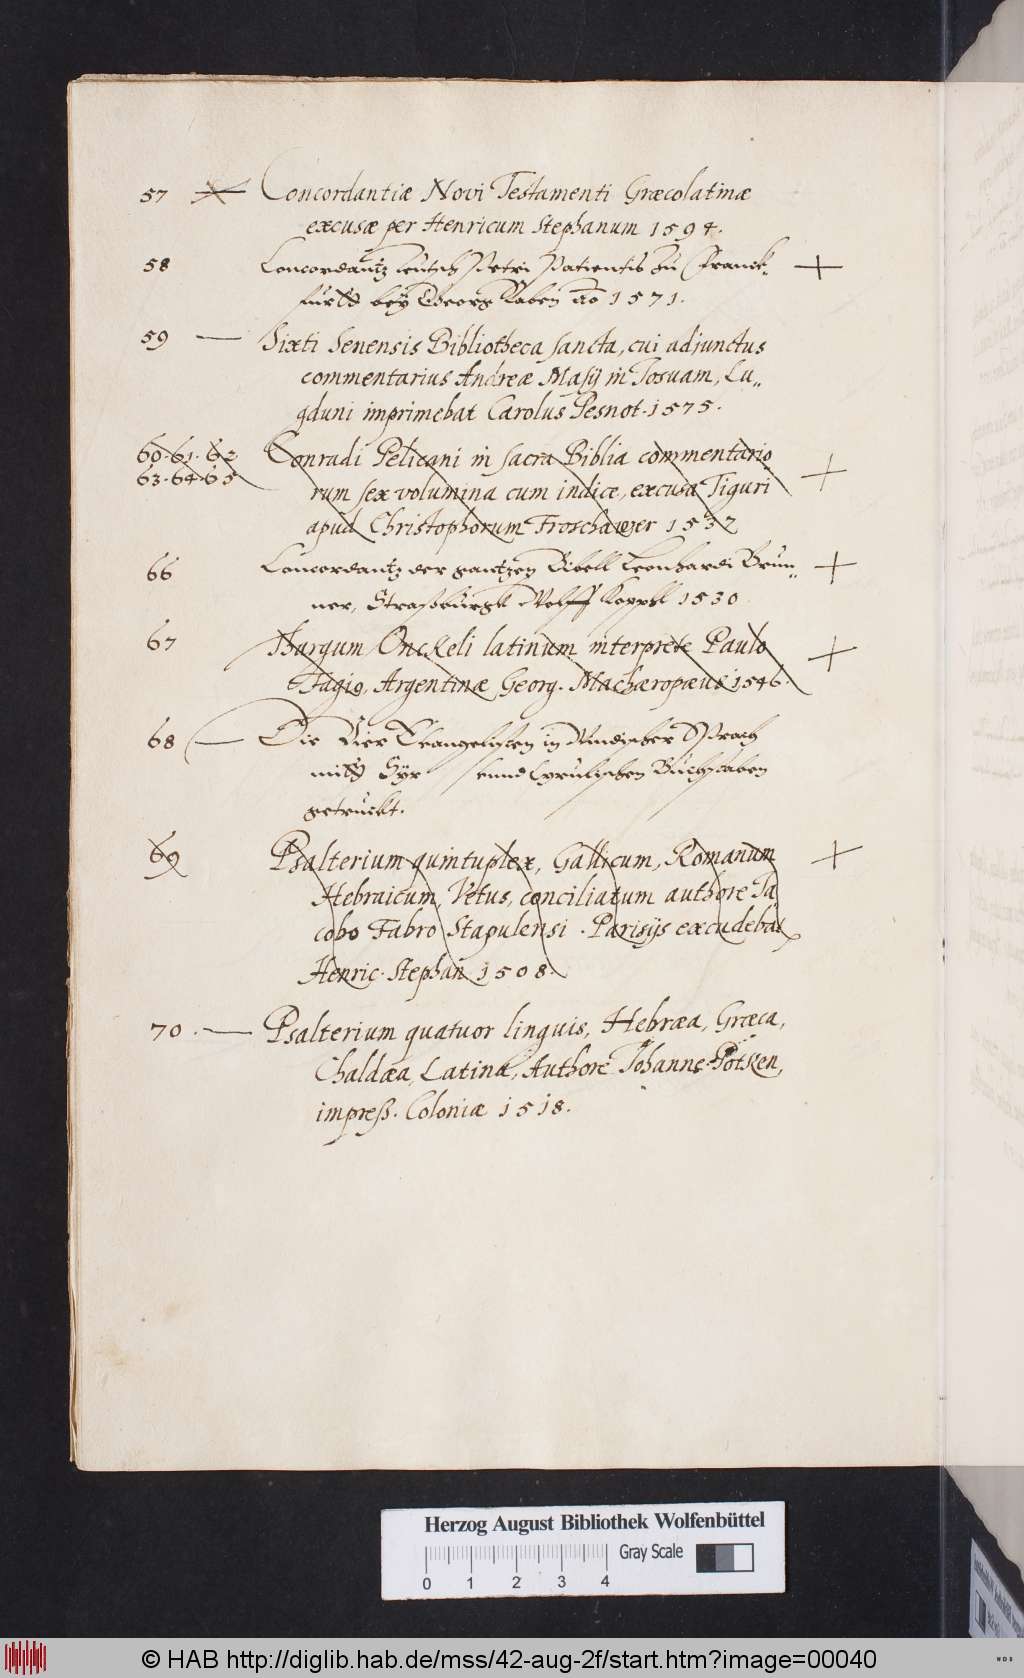 57 Concordantiæ Novi Testamenti Græcolatinæ
excusæ per Henricum Stephanum 1594.
58 Concordantz teutsch Petri Patientis zu Franck-
furtt bey Georg Raben ao 1571.
59 Sixti Senensis Bibliotheca sancta, cui adjunctus
commentarius Andreæ Masij in Josuam, Lu„
gduni imprimebat Carolus Pesnot. 1575.
60. 61. 62 Conradi Pelicani in sacra Biblia commentario
63. 64. 65 rum sex volumina cum indice, excusa Tiguri
apud Christophorum Froschawer 1537
66 Concordantz der gantzen Bibell Leonhardi Brun„
ner, Straßburgk WolffKöpphl 1530
67 Thargum Onckeli latinum interprete Paulo
Fagio, Argentinæ Georg. Machæropæus 1546.
68 Die Vier Evangelisten in Windischer Sprach
mitt Cyrulischen Buchstaben
getruckt.
69 Psalterium quintuplex, Gallicum, Romanum
Hebraicum, Vetus, conciliatum authore Ja
cobo Fabro Stapulensi. Parisijs excudebat
Henric. Stephan 1508.
70. Psalterium quatuor linguis, Hebræa, Græca,
Chaldæa, Latina, Authore Johanne Potken,
impreß. Coloniæ 1518.
Herzog August Bibliothek Wolfenbüttel
Gray Scale
0 1 2 3 4
© HAB http://diglib.hab.de/mss/42-aug-2f/start.htm?image=00040